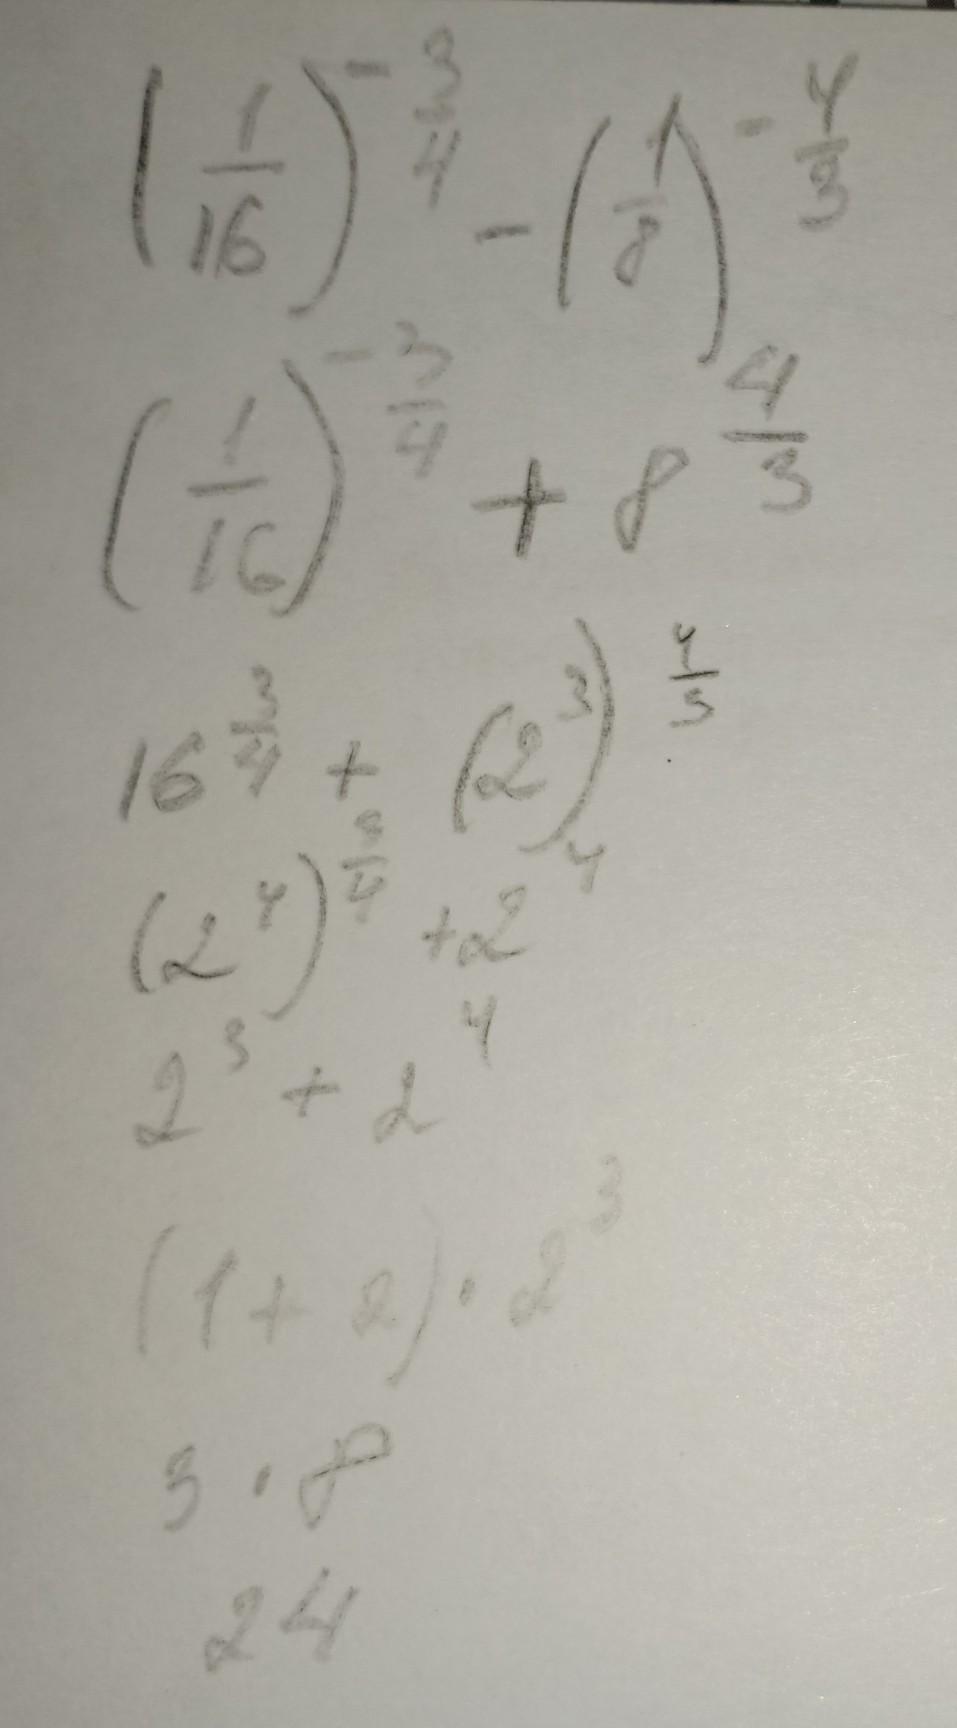 (1/16)^(-3/4) - (1/8)^(-4/3)
(1/16)^(-3/4) + 8^(4/3)
16^(3/4) + (2^3)^(4/3)
(2^4)^(3/4) + 2^4
2^3 + 2^4
(1 + 2) · 2^3
3 · 8
24